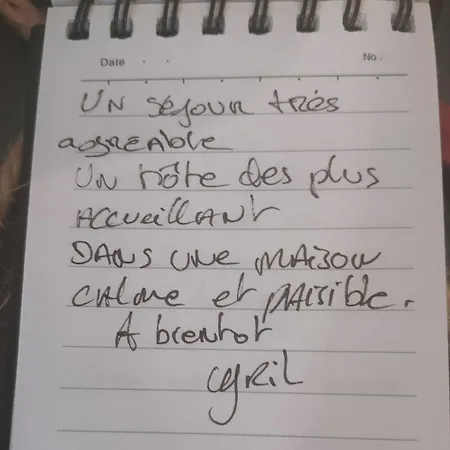 Date . . No.
UN séjour très
agreable
UN hôte des plus
Accueillant
DANS une maison
calme et paisible.
A bientot
Cyril